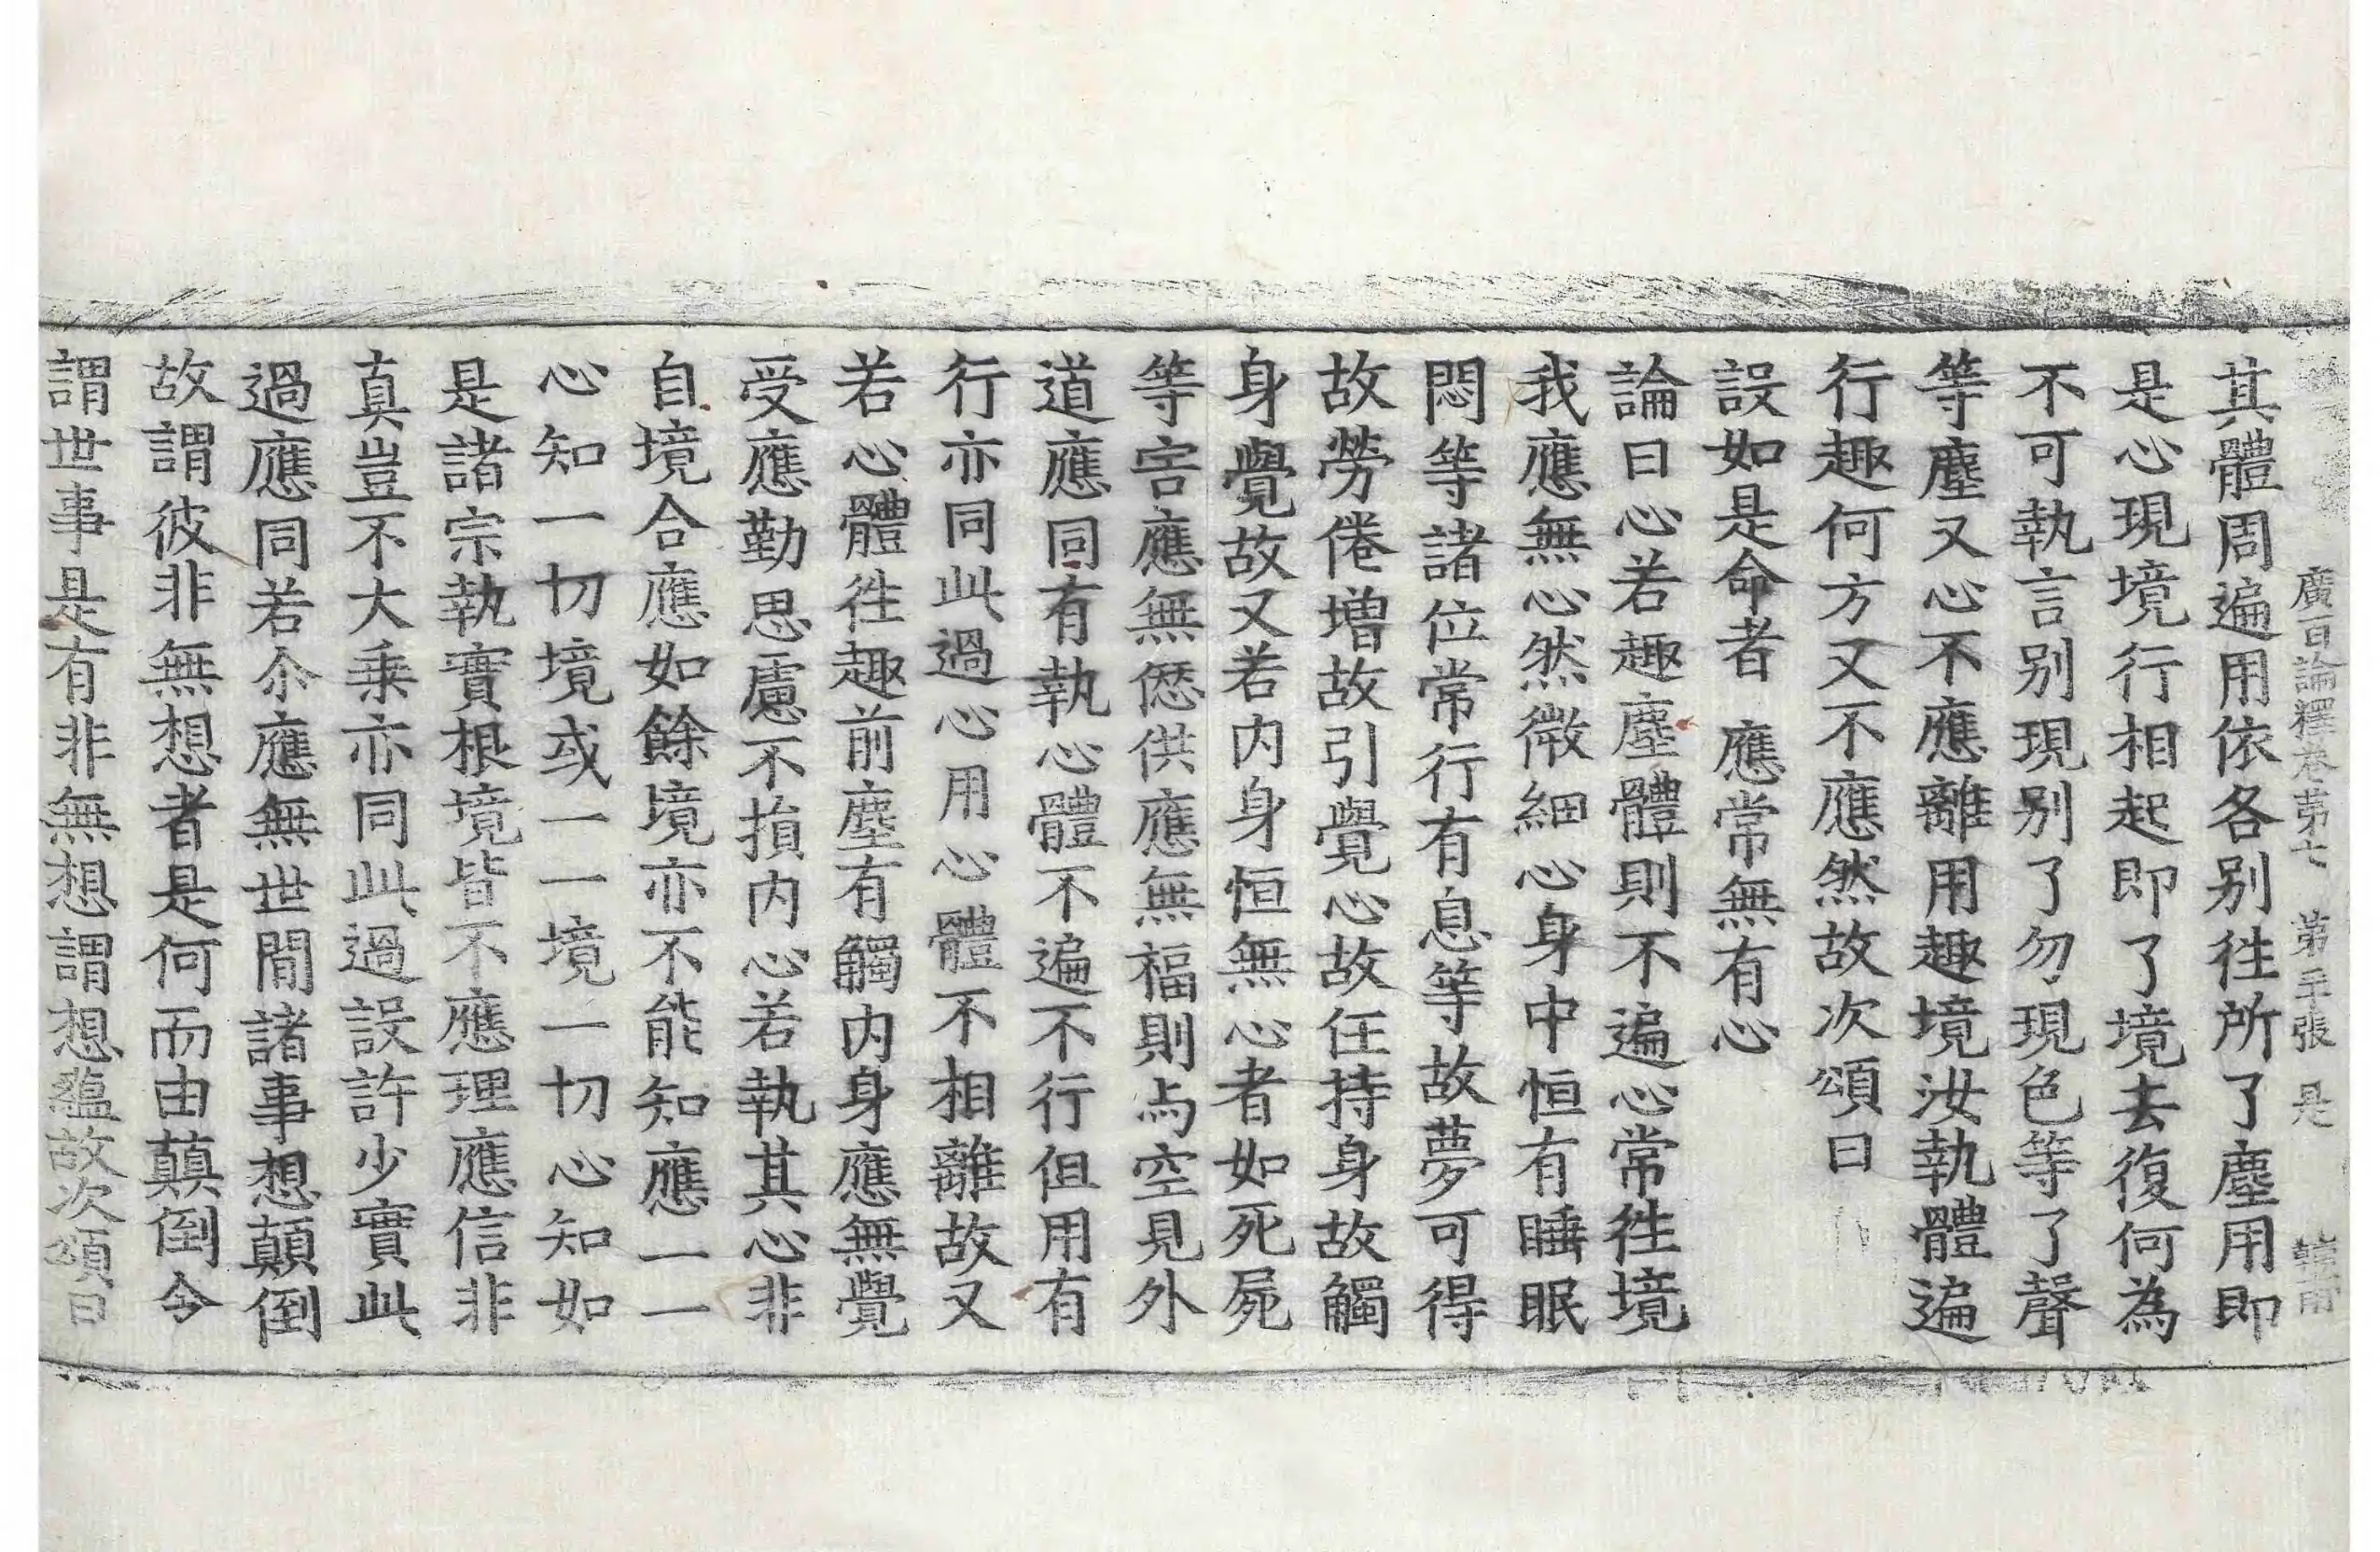 廣百論釋卷第七 第二十張 是
其體周遍用依各別徃所了塵用即
是心現境行相起即了境去復何為
不可執言別現別了勿現色等了聲
等塵又心不應離用趣境汝執體遍
行趣何方又不應然故次頌曰
設如是命者 應常無有心
論曰心若趣塵體則不遍心常徃境
我應無心然微細心身中恒有睡眠
悶等諸位常行有息等故夢可得
故勞倦增故引覺心故任持身故觸
身覺故又若内身恒無心者如死屍
等害應無𠎝供應無福則与空見外
道應同有執心體不遍不行但用有
行亦同此過心用心體不相離故又
若心體徃趣前塵有觸内身應無覺
受應勤思慮不損内心若執其心非
自境合應如餘境亦不能知應一一
心知一切境或一一境一切心知如
是諸宗執實根境皆不應理應信非
真豈不大乘亦同此過設許少實此
過應同若尒應無世間諸事想顛倒
故謂彼非無想者是何而由蘔倒今
謂世事是有非無想謂想蘊故次頌曰